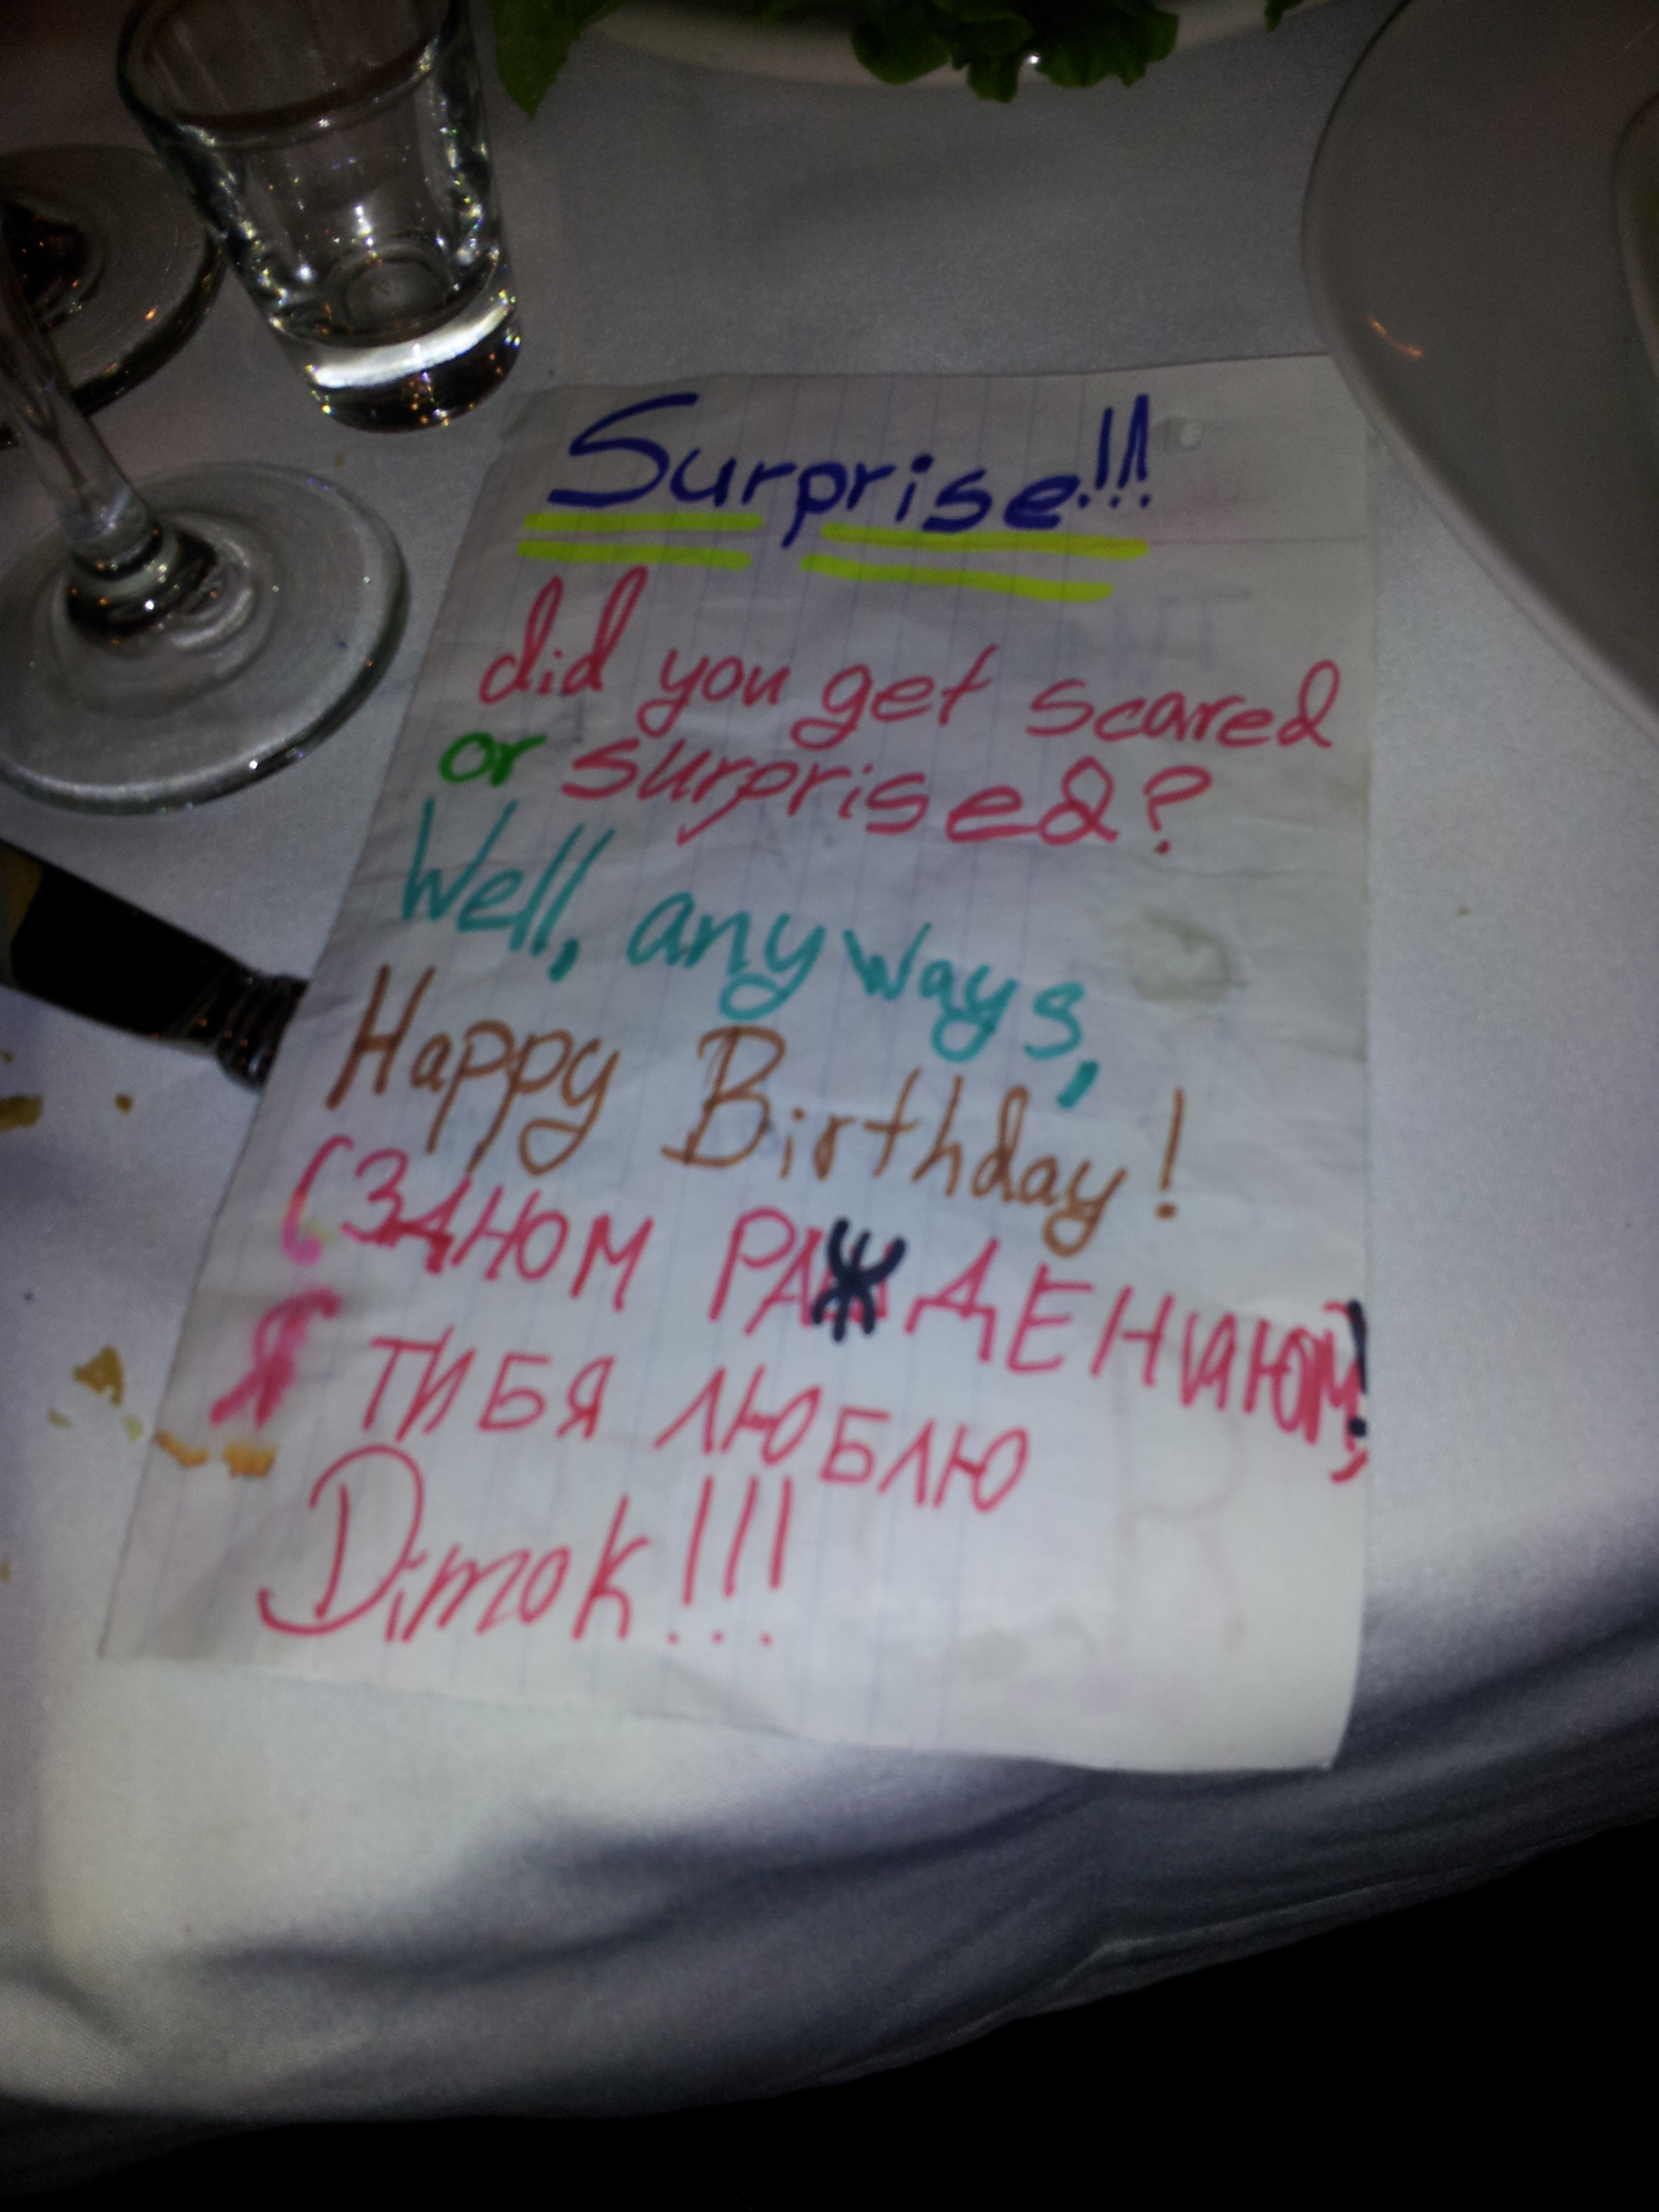 Surprise!!!
did you get scared
or surprised?
Well, anyways,
Happy Birthday!
(ЗДНОМ РАЖДЕНИЮМ!)
Я ТИБЯ ЛЮБЛЮ
Dimok!!!